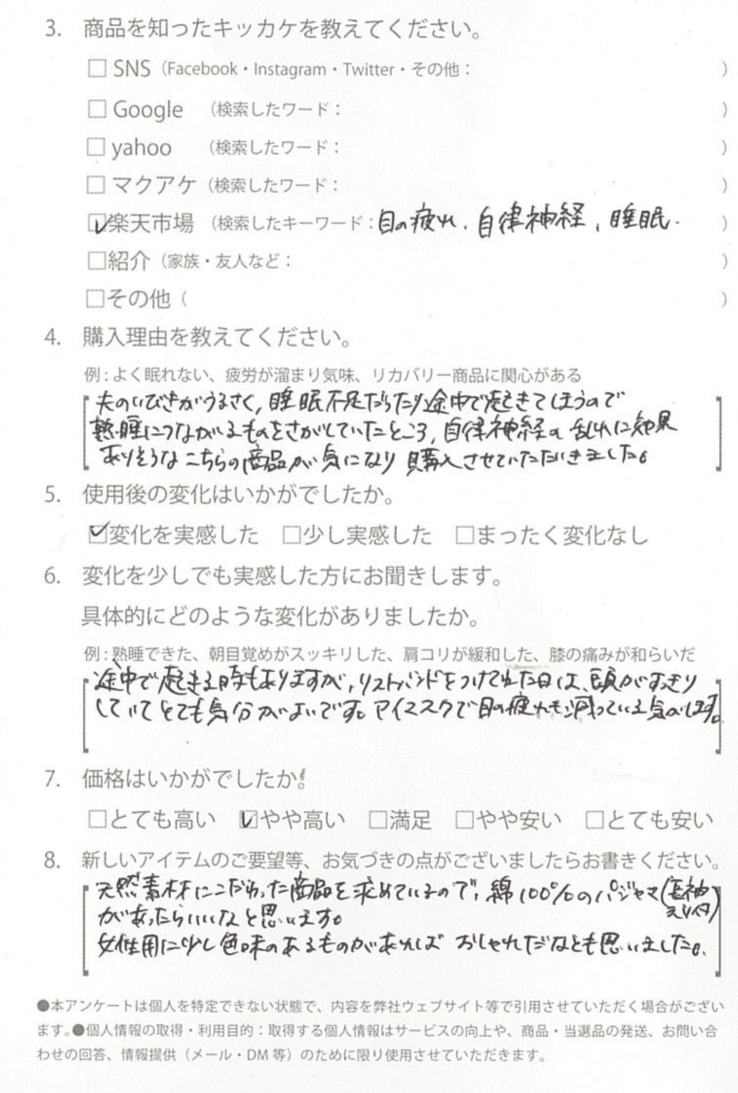 3. 商品を知ったキッカケを教えてください。
□ SNS（Facebook・Instagram・Twitter・その他： ）
□ Google （検索したワード： ）
□ yahoo （検索したワード： ）
□ マクアケ（検索したワード： ）
☑楽天市場（検索したキーワード：目の疲れ、自律神経、睡眠. ）
□紹介（家族・友人など： ）
□その他（ ）
4. 購入理由を教えてください。
例：よく眠れない、疲労が溜まり気味、リカバリー商品に関心がある
夫のいびきがうるさく、睡眠不足だったり途中で起きてしまうので
熟睡につながるものをさがしていたところ、自律神経の乱れに効果
ありそうなこちらの商品が気になり購入させていただきました。
5. 使用後の変化はいかがでしたか。
☑変化を実感した □少し実感した □まったく変化なし
6. 変化を少しでも実感した方にお聞きします。
具体的にどのような変化がありましたか。
例：熟睡できた、朝目覚めがスッキリした、肩コリが緩和した、膝の痛みが和らいだ
途中で起きる時もありますが、リストバンドをつけてねた日は、頭がすっきり
していてとても気分がよいです。アイマスクで目の疲れも減っている気がします。
7. 価格はいかがでしたか。
□とても高い ☑やや高い □満足 □やや安い □とても安い
8. 新しいアイテムのご要望等、お気づきの点がございましたらお書きください。
天然素材にこだわった商品を求めているので、綿100%のパジャマ(長袖えり付)
があったらいいなと思います。
女性用に少し色味のあるものがあれば おしゃれだなとも思いました。
●本アンケートは個人を特定できない状態で、内容を弊社ウェブサイト等で引用させていただく場合がござい
ます。●個人情報の取得・利用目的：取得する個人情報はサービスの向上や、商品・当選品の発送、お問い合
わせの回答、情報提供（メール・DM 等）のために限り使用させていただきます。